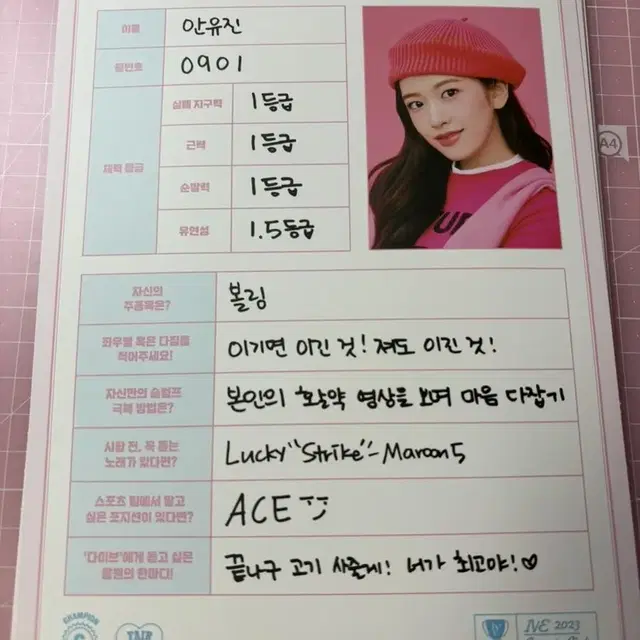 이름 안유진
등번호 0901
체력 등급
심폐 지구력 1등급
근력 1등급
순발력 1등급
유연성 1.5등급
A4
자신의
주종목은?
볼링
좌우명 혹은 다짐을
적어주세요!
이기면 이진 것! 져도 이진 것!
자신만의 슬럼프
극복 방법은?
본인의 활약 영상을 보며 마음 다잡기
시합 전, 꼭 듣는
노래가 있다면?
Lucky "Strike" - Maroon 5
스포츠 팀에서 맡고
싶은 포지션이 있다면?
ACE
'다이브'에게 듣고 싶은
응원의 한마디!
끝나구 고기 사줄게! 너가 최고야!♡
CHAMPION
FAIR
IVE 2023